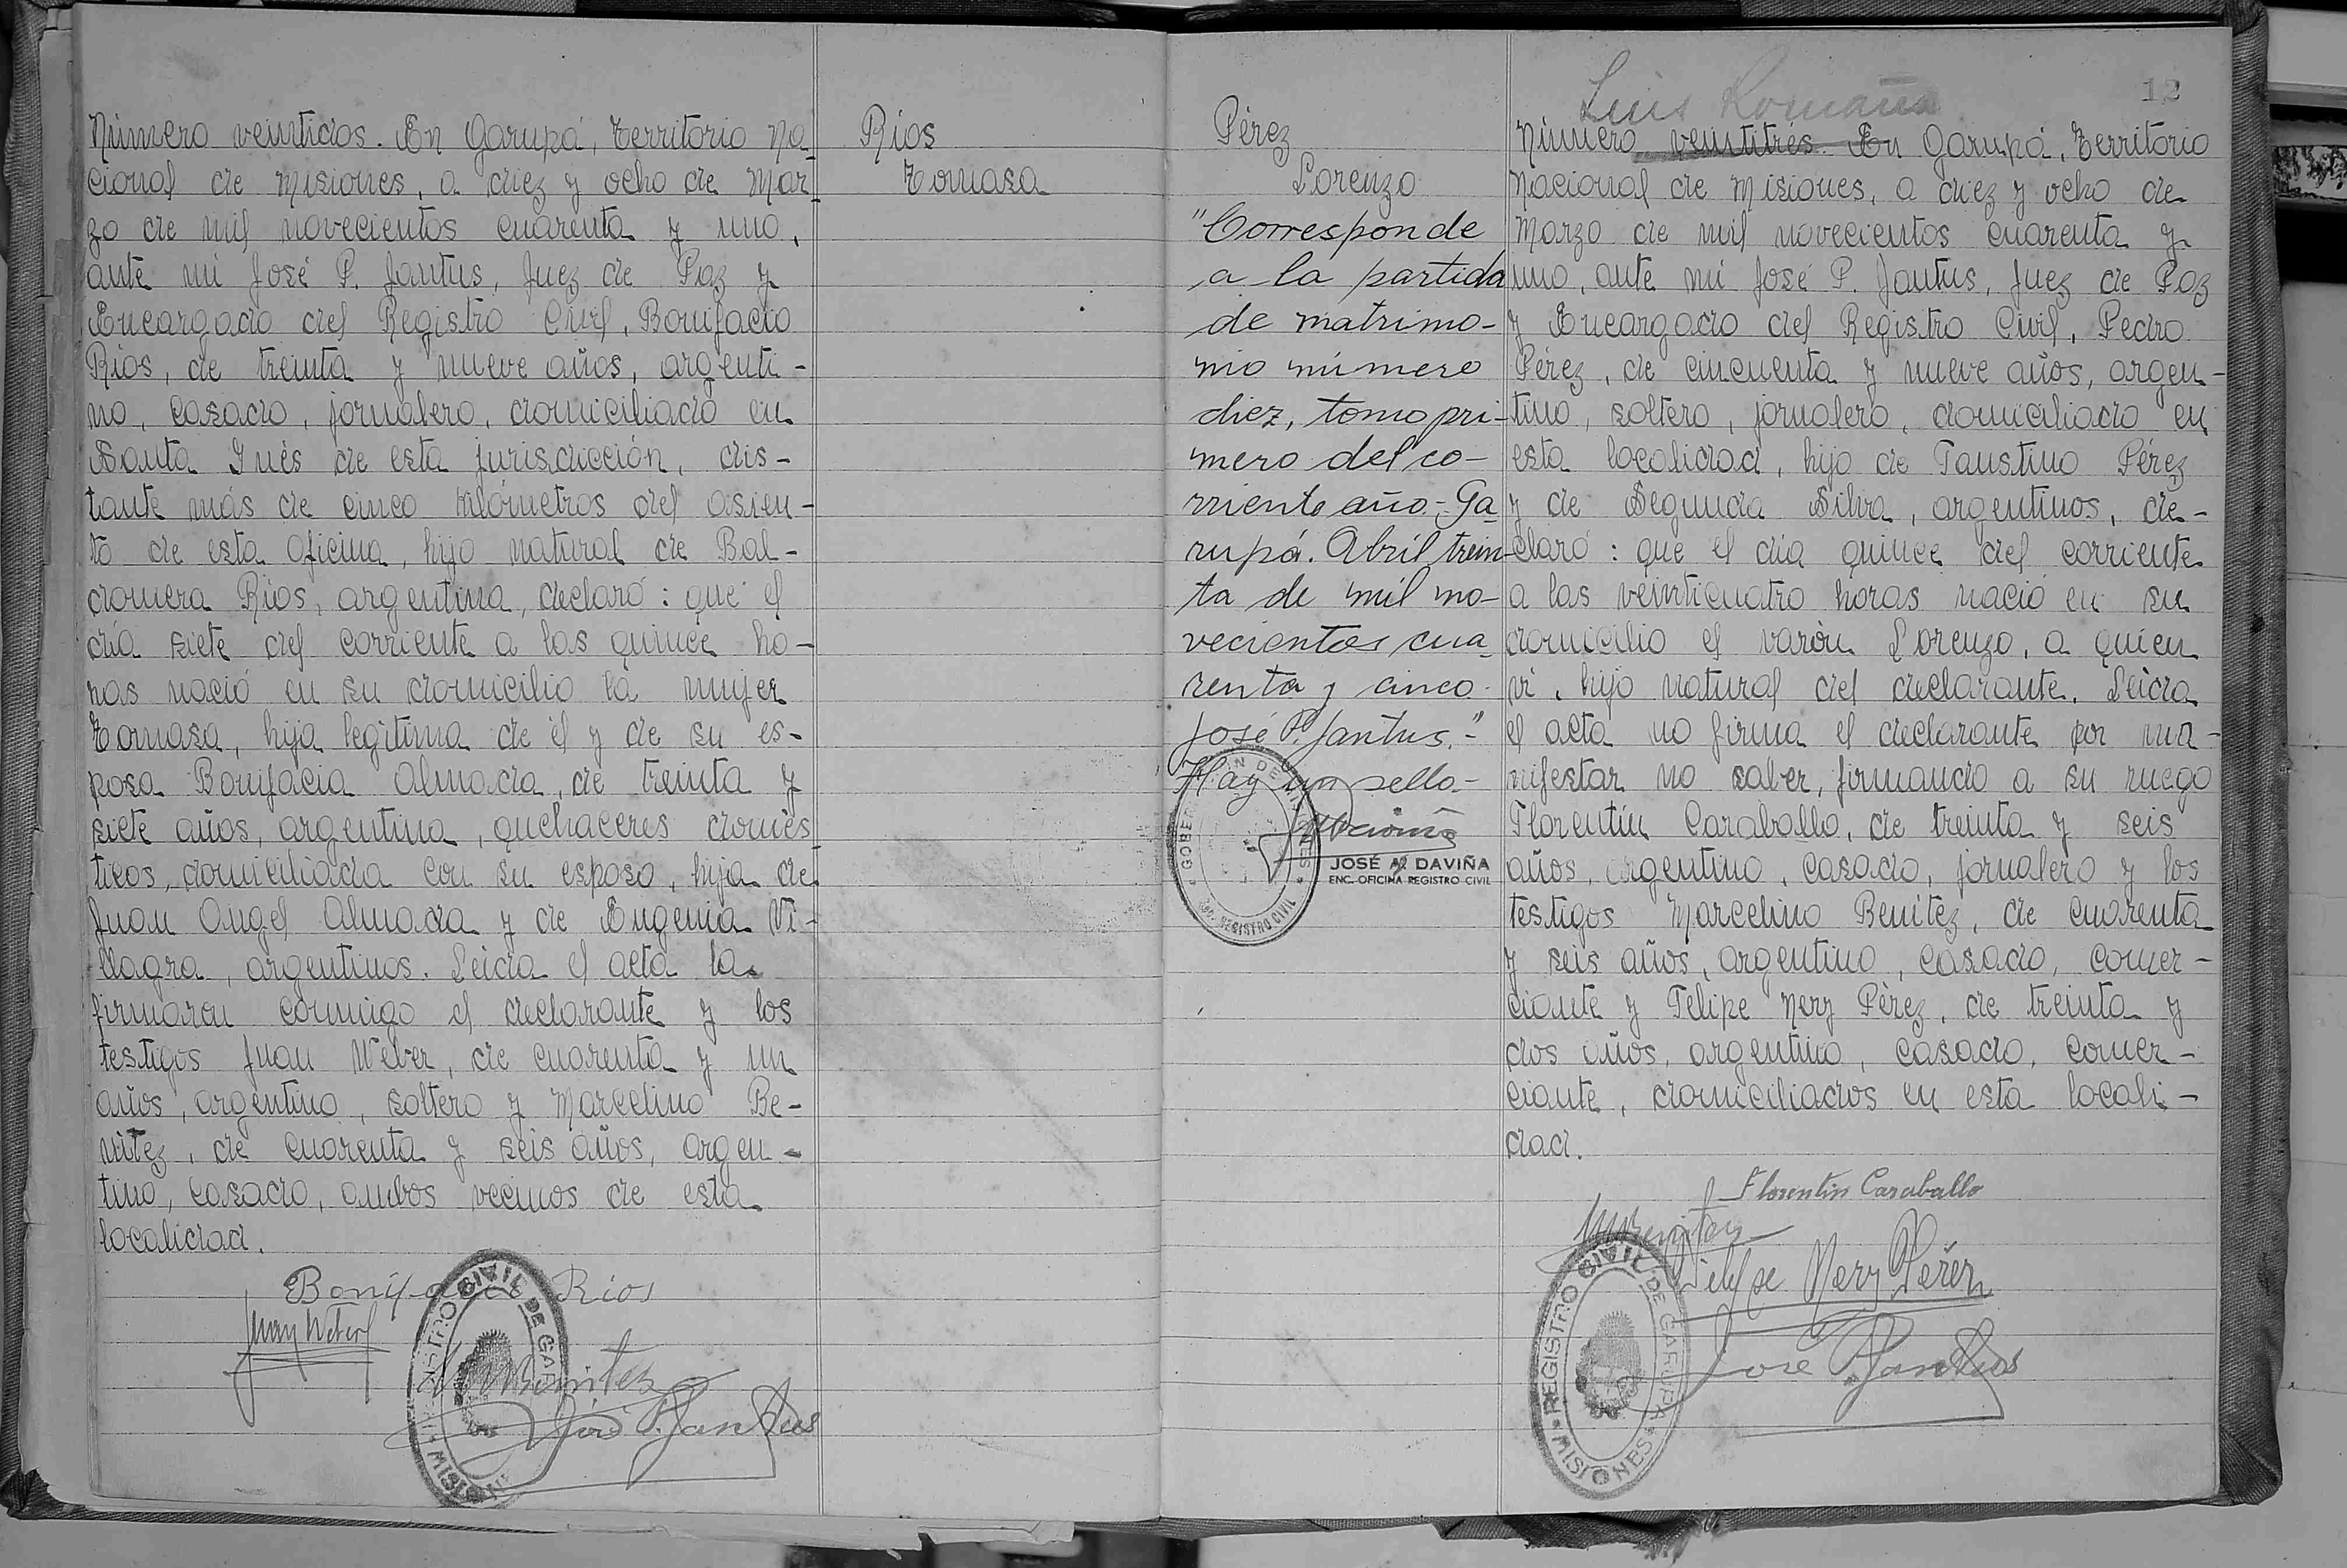 Número veintidos. En Garupá, Territorio Na-
cional de Misiones, a diez y ocho de Mar-
zo de mil novecientos cuarenta y uno,
ante mí José P. Jantus, Juez de Paz y
Encargado del Registro Civil, Bonifacio
Ríos, de treinta y nueve años, argenti-
no, casado, jornalero, domiciliado en
Santa Inés de esta jurisdicción, dis-
tante más de cinco kilómetros del asien-
to de esta Oficina, hijo natural de Bal-
domera Ríos, argentina, declaró: que el
día siete del corriente a las quince ho-
ras nació en su domicilio la mujer
Tomasa, hija legítima de él y de su es-
posa Bonifacia Almada, de treinta y
siete años, argentina, quehaceres domés-
ticos, domiciliada con su esposo, hija de
Juan Angel Almada y de Eugenia Vi-
llagra, argentinos. Leida el acta la
firmaron conmigo el declarante y los
testigos Juan Weber, de cuarenta y un
años, argentino, soltero y Marcelino Be-
nitez, de cuarenta y seis años, argen-
tino, casado, ambos vecinos de esta
localidad.
Bonifacio Rios
Juan Weber
M Benitez
José P. Jantus
REGISTRO CIVIL DE GARUPÁ
MISIONES
Ríos
Tomasa
Pérez
Lorenzo
"Corresponde
a la partida
de matrimo-
nio número
diez, tomo pri-
mero del co-
rriente año.- Ga-
rupá. Abril trein-
ta de mil no-
vecientos cua-
renta y cinco.
José P. Jantus."-
Hay un sello.-
JOSÉ M. DAVIÑA
ENC. OFICINA REGISTRO CIVIL
REGISTRO CIVIL
Luis Romaña
12
Número veintitrés. En Garupá, Territorio
Nacional de Misiones, a diez y ocho de
Marzo de mil novecientos cuarenta y
uno, ante mí José P. Jantus, Juez de Paz
y Encargado del Registro Civil, Pedro
Pérez, de cincuenta y nueve años, argen-
tino, soltero, jornalero, domiciliado en
esta localidad, hijo de Faustino Pérez
y de Segunda Silva, argentinos, de-
claró: que el día quince del corriente
a las veinticuatro horas nació en su
domicilio el varón Lorenzo, a quien
vi, hijo natural del declarante. Leida
el acta no firma el declarante por ma-
nifestar no saber, firmando a su ruego
Florentín Caraballo, de treinta y seis
años, argentino, casado, jornalero y los
testigos Marcelino Benitez, de cuarenta
y seis años, argentino, casado, comer-
ciante y Felipe Nery Pérez, de treinta y
dos años, argentino, casado, comer-
ciante, domiciliados en esta locali-
dad.
Florentin Caraballo
M Benitez
Felipe Nery Pérez
José P. Jantus
REGISTRO CIVIL DE GARUPÁ
MISIONES